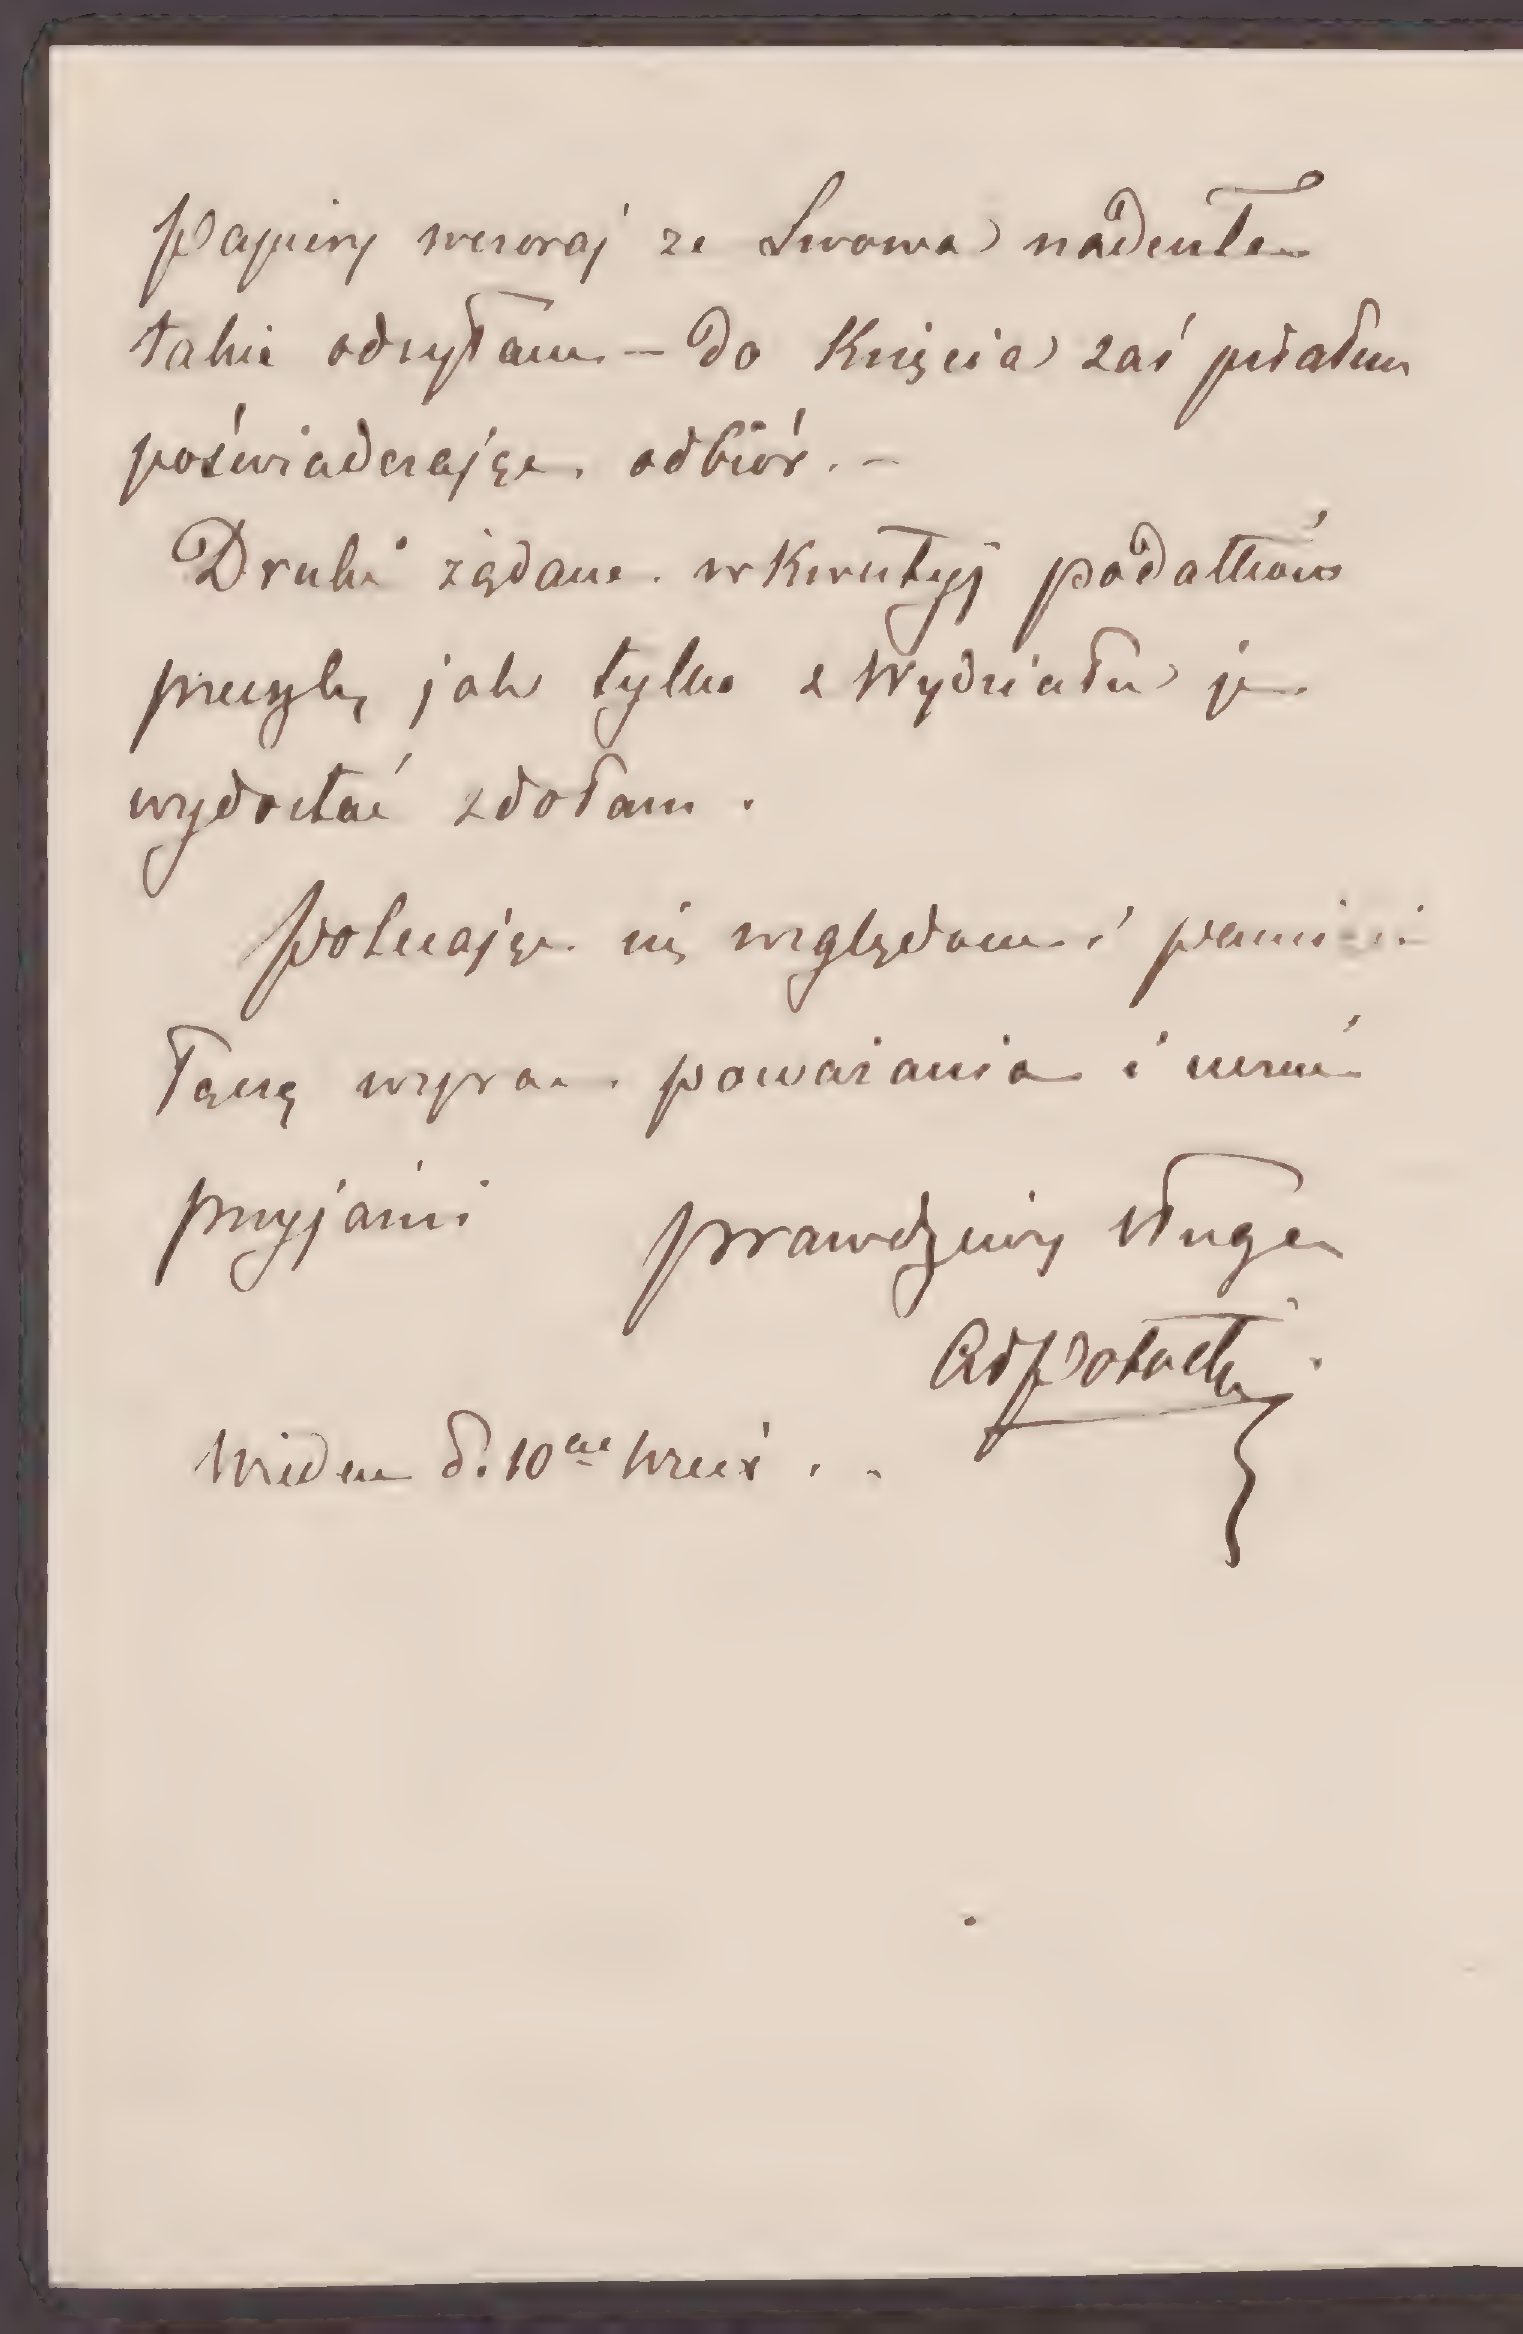 Papiery wczoraj ze Lwowa nadeszłe
także odsyłam — do Księcia zaś pisałem
poświadczając odbiór. —
Druki żądane w kwestyj podatków
przeszlę jak tylko z Wydziału je
wydostać zdołam.
Polecając się względom i pamięci
łączę wyraz poważania i
przyjaźni prawdziwy sługa
AdPotocki
Wiedeń d. 10 Wrześ